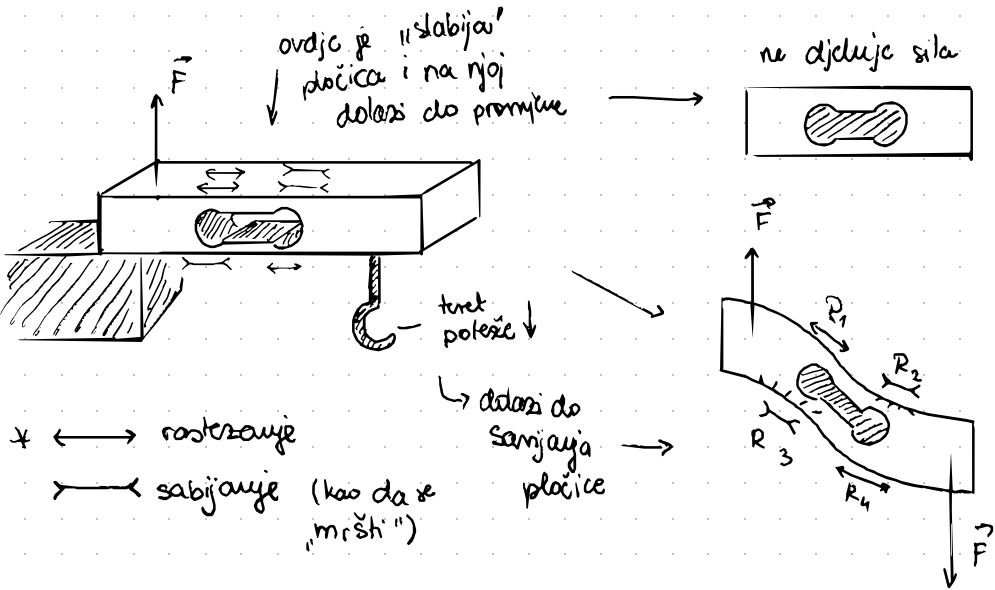 ovdje je „slabija"
pločica i na njoj
dolazi do promjene
F
ne djeluje sila
teret
poteže
dolazi do
savijanja
pločice
* rastezanje
sabijanje (kao da se
„mršti")
F
R1
R2
R3
R4
F